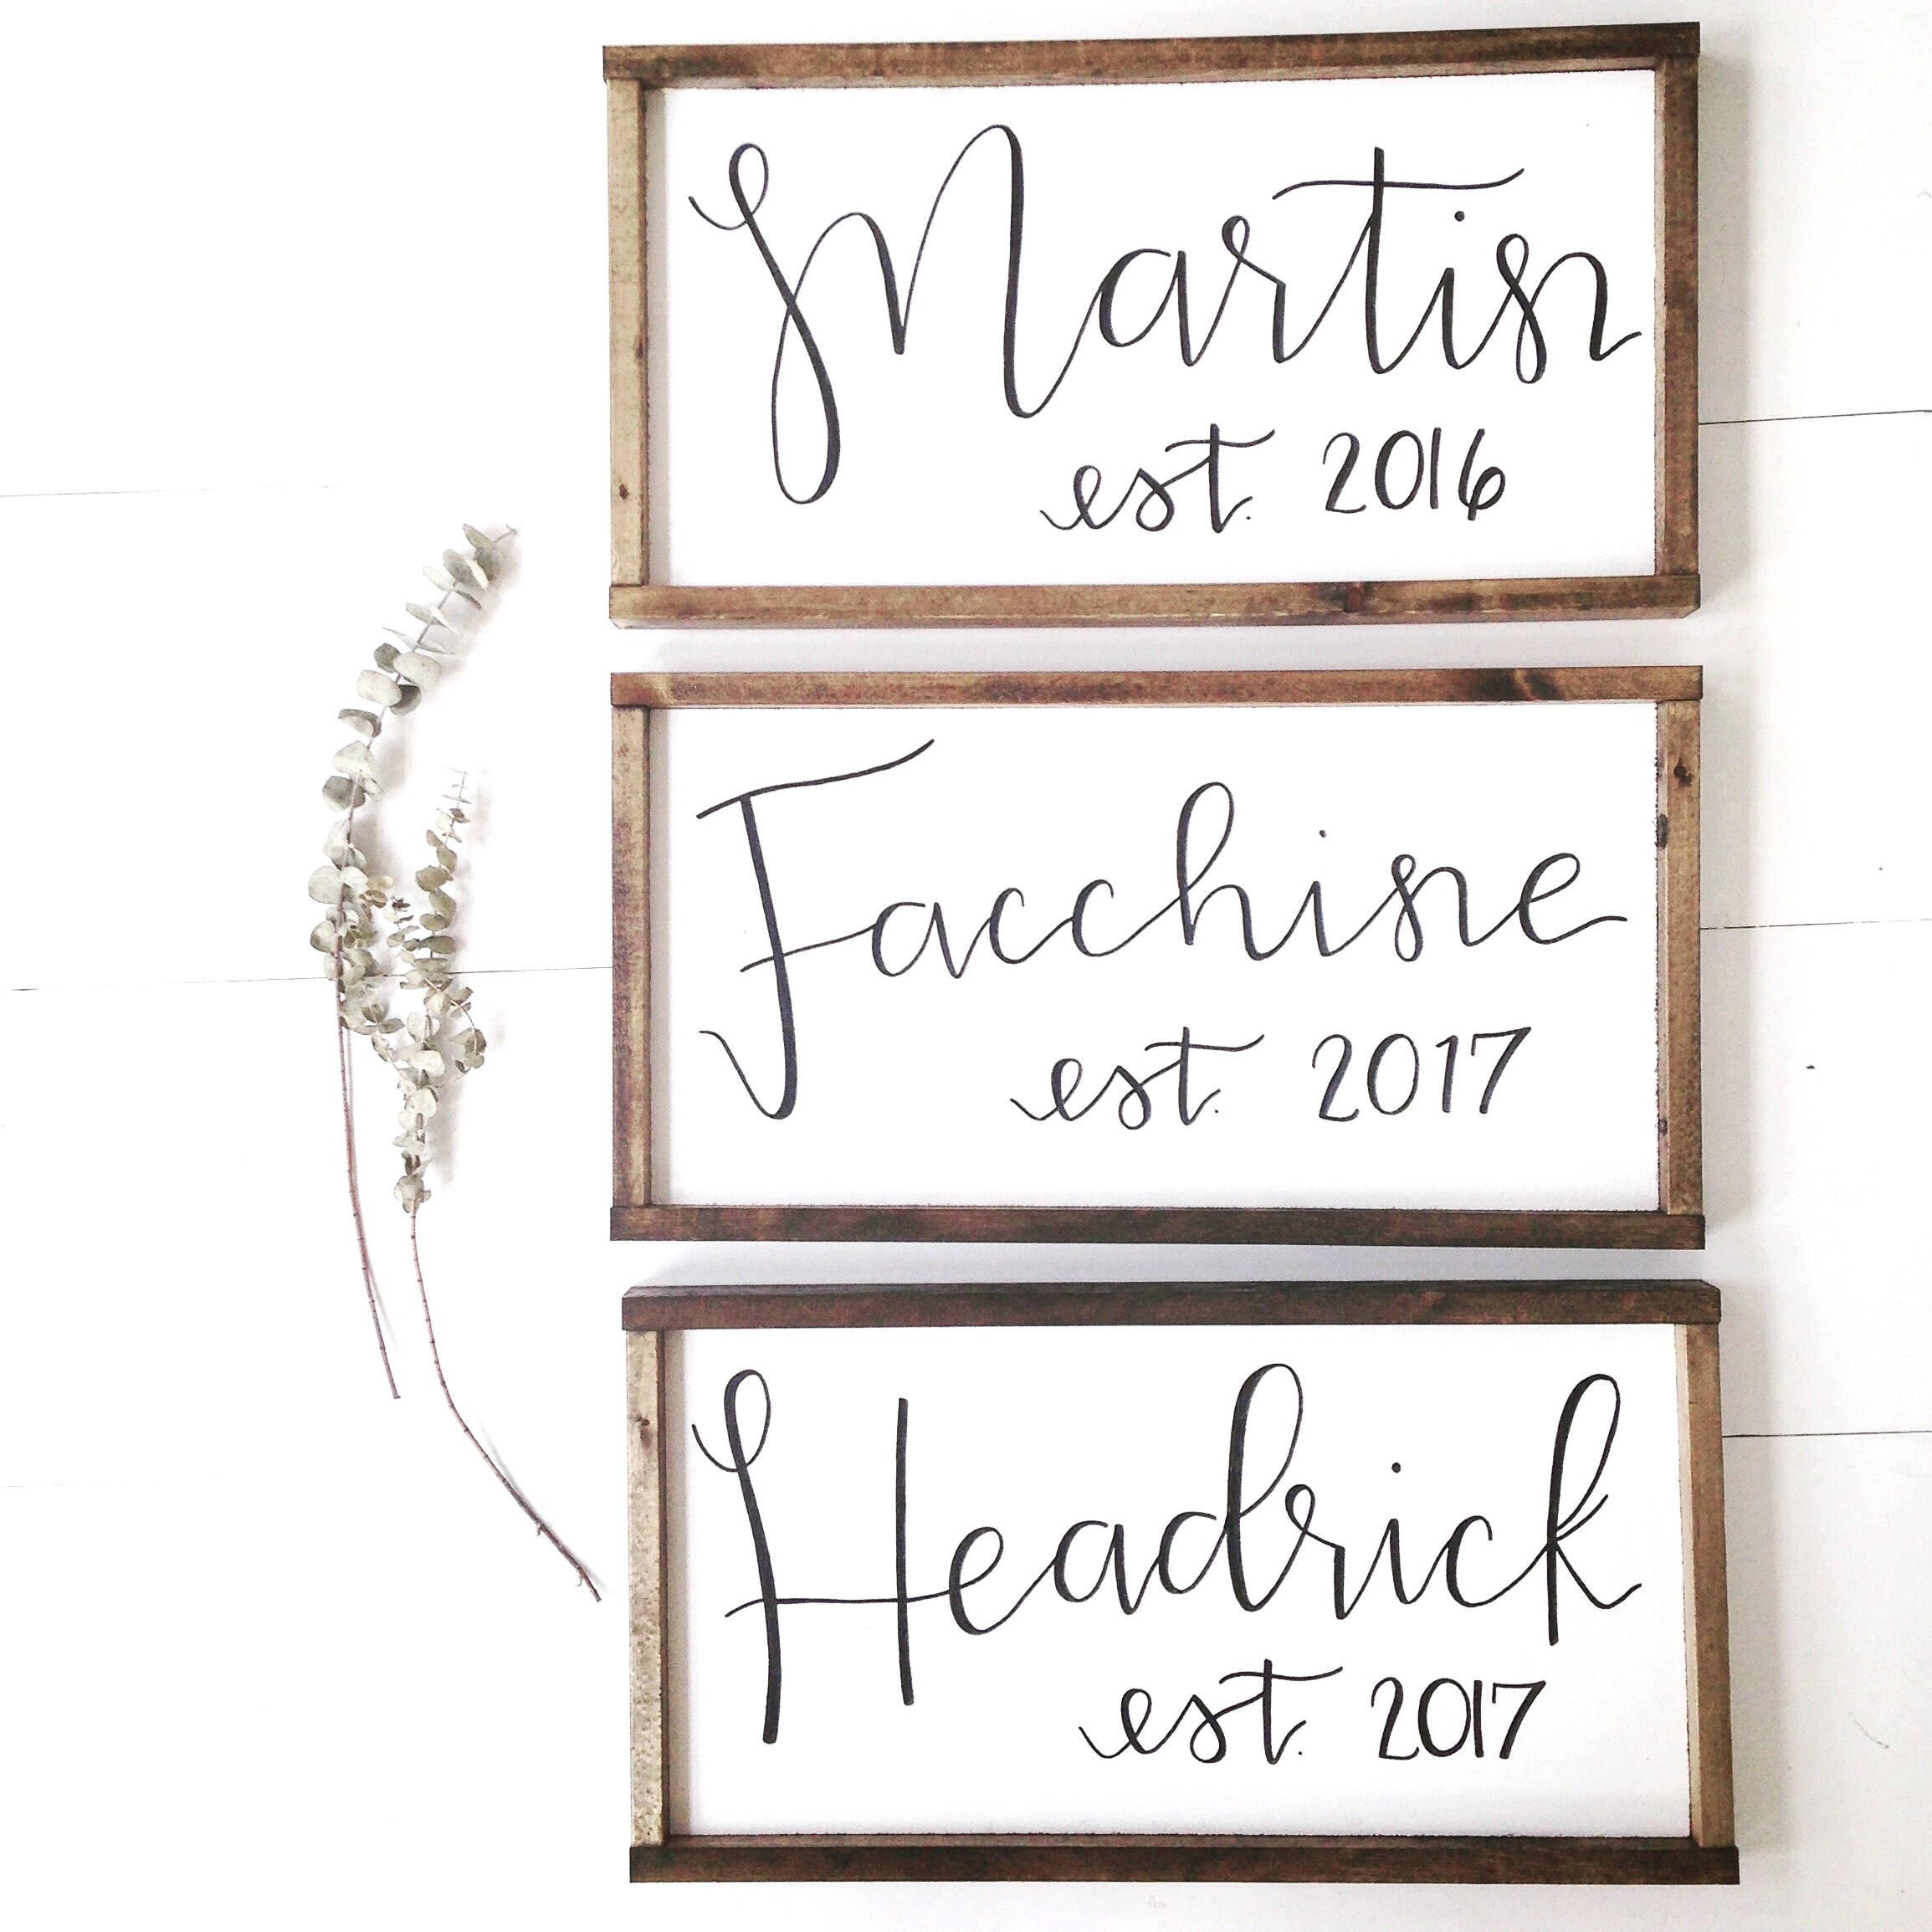 Martin
est. 2016
Facchine
est. 2017
Headrick
est. 2017